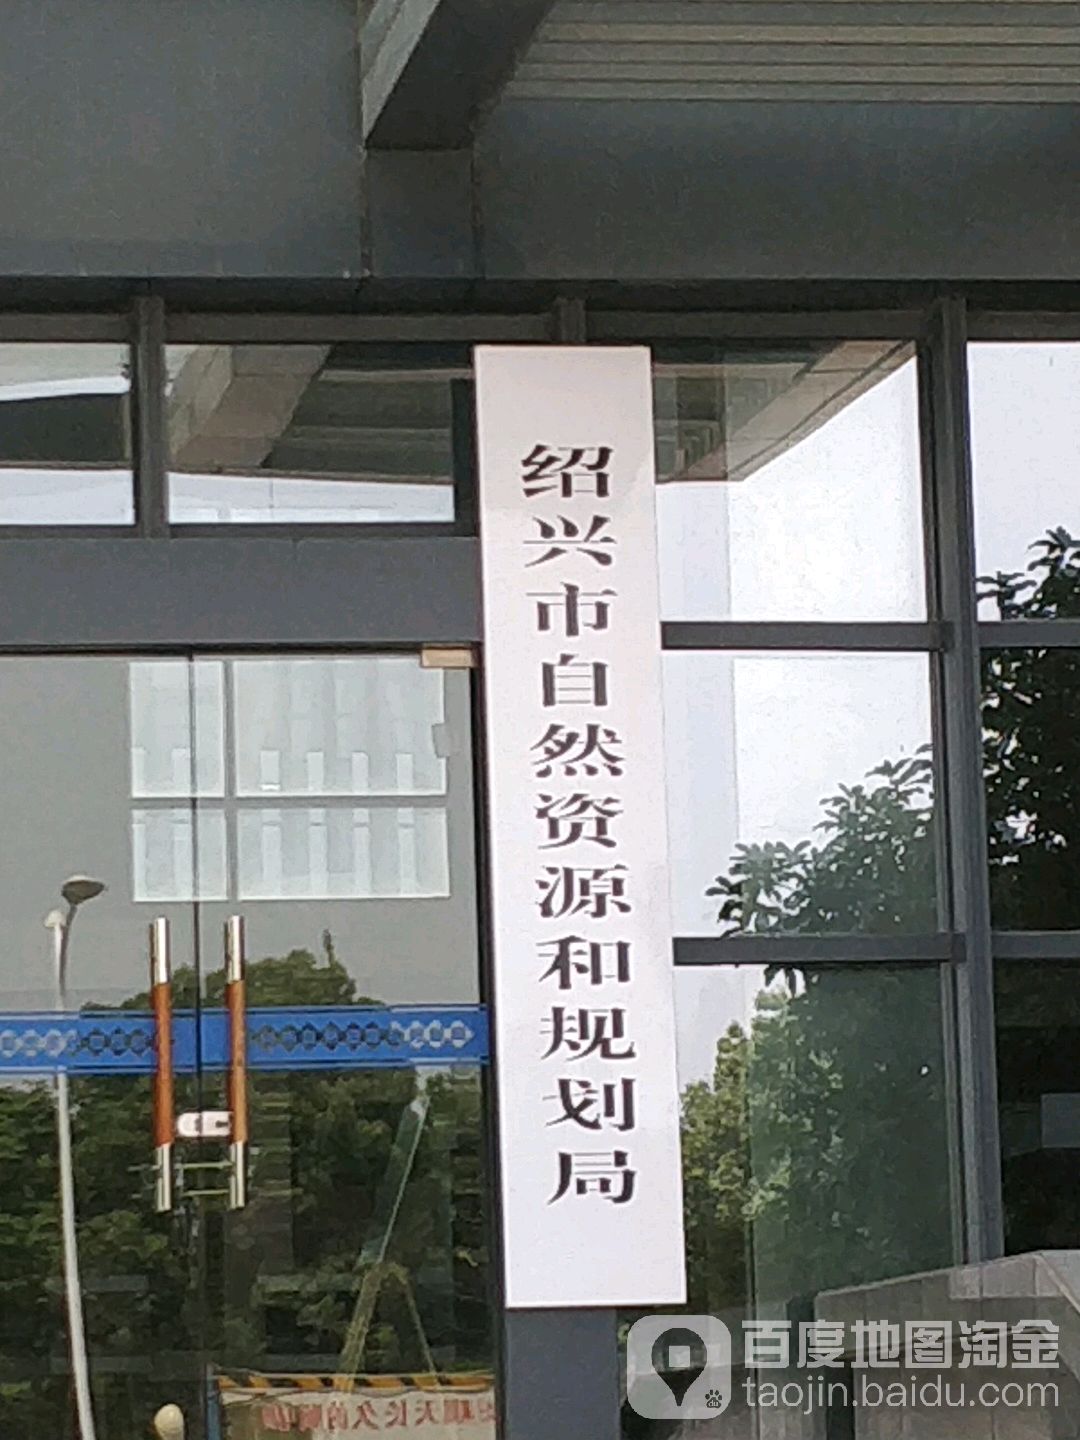 绍兴市自然资源和规划局
百度地图淘金
taojin.baidu.com